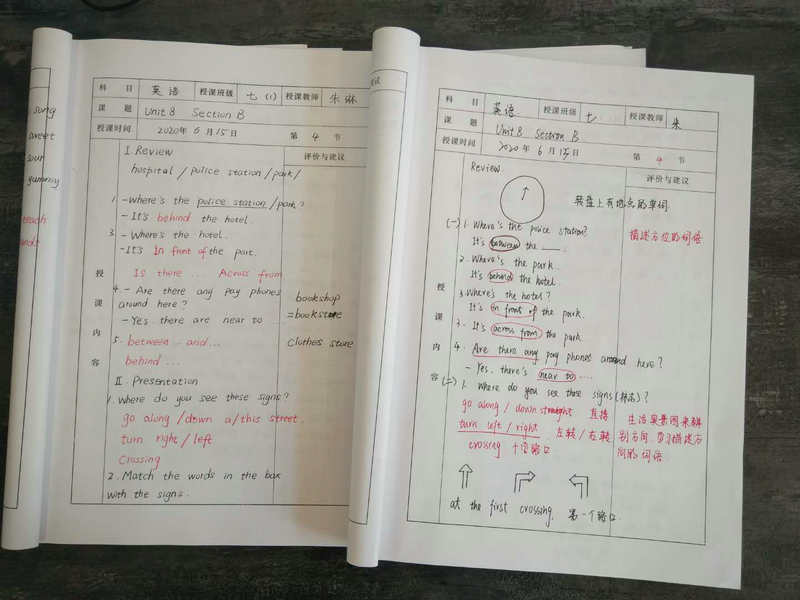 song
sweet
sour
yummy
teach
科 目 英语 授课班级 七.(1) 授课教师 朱琳
课 题 Unit 8 Section B
授课时间 2020年 6月15日 第 4 节
授课内容
评价与建议
I. Review
hospital / police station / park /
1. -Where's the police station / park?
-It's behind the hotel.
3. -Where's the hotel.
-It's In front of the park.
Is there ... Across from
4. -Are there any pay phones
around here?
-Yes there are near to
5. between ... and ...
behind ...
bookshop
=bookstore
clothes store
II. Presentation
1. Where do you see these signs?
go along / down a/this street.
turn right / left
Crossing
2. Match the words in the box
with the signs.
科 目 英语 授课班级 七 授课教师 朱
课 题 Unit 8 Section B
授课时间 2020年 6月15日 第 4 节
授课内容
评价与建议
Review
转盘上有地点的单词
(一) 1. Where's the police station?
It's between the ___.
2. Where's the park.
It's behind the hotel.
3. Where's the hotel?
It's in front of the park.
3. It's across from the park
4. Are there any pay phones around here?
- Yes, there's near to ....
描述方位的词语
(二) 1. Where do you see these signs (标志)?
go along / down straight 直接
turn left / right 左转 / 右转
crossing 十字路口
生活实景图来辨
别方向,学习描述方
向的词语
at the first crossing. 第一个路口.